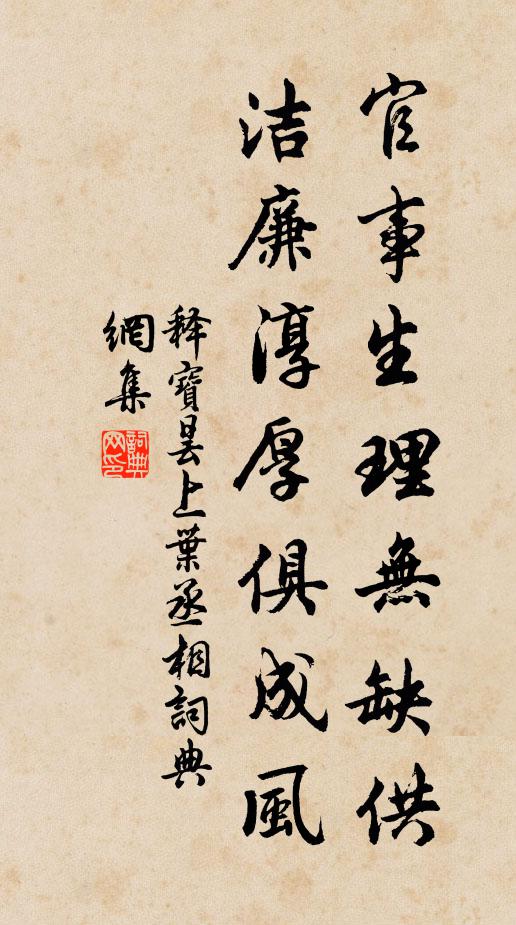 官事生理無缺供
洁廉淳厚俱成風
释寶昙上葉丞相詞典
網集
詞典网印